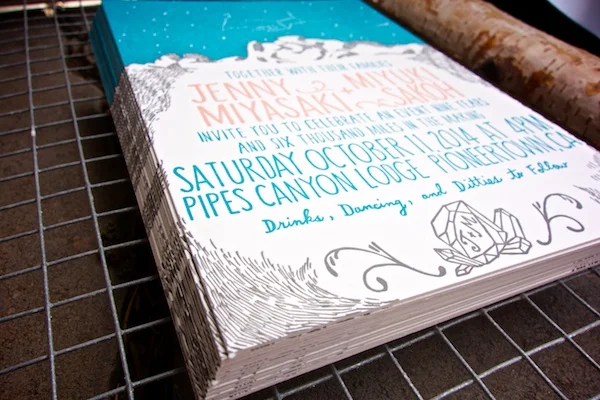 TOGETHER WITH THEIR FAMILIES
JENNY & MIYUKI
MIYASAKI
INVITE YOU TO CELEBRATE AN EVENT NINE YEARS
AND SIX THOUSAND MILES IN THE MAKING
SATURDAY OCTOBER 11 2014 AT 4PM
PIPES CANYON LODGE PIONEERTOWN CA
Drinks, Dancing, and Ditties to Follow
J&M